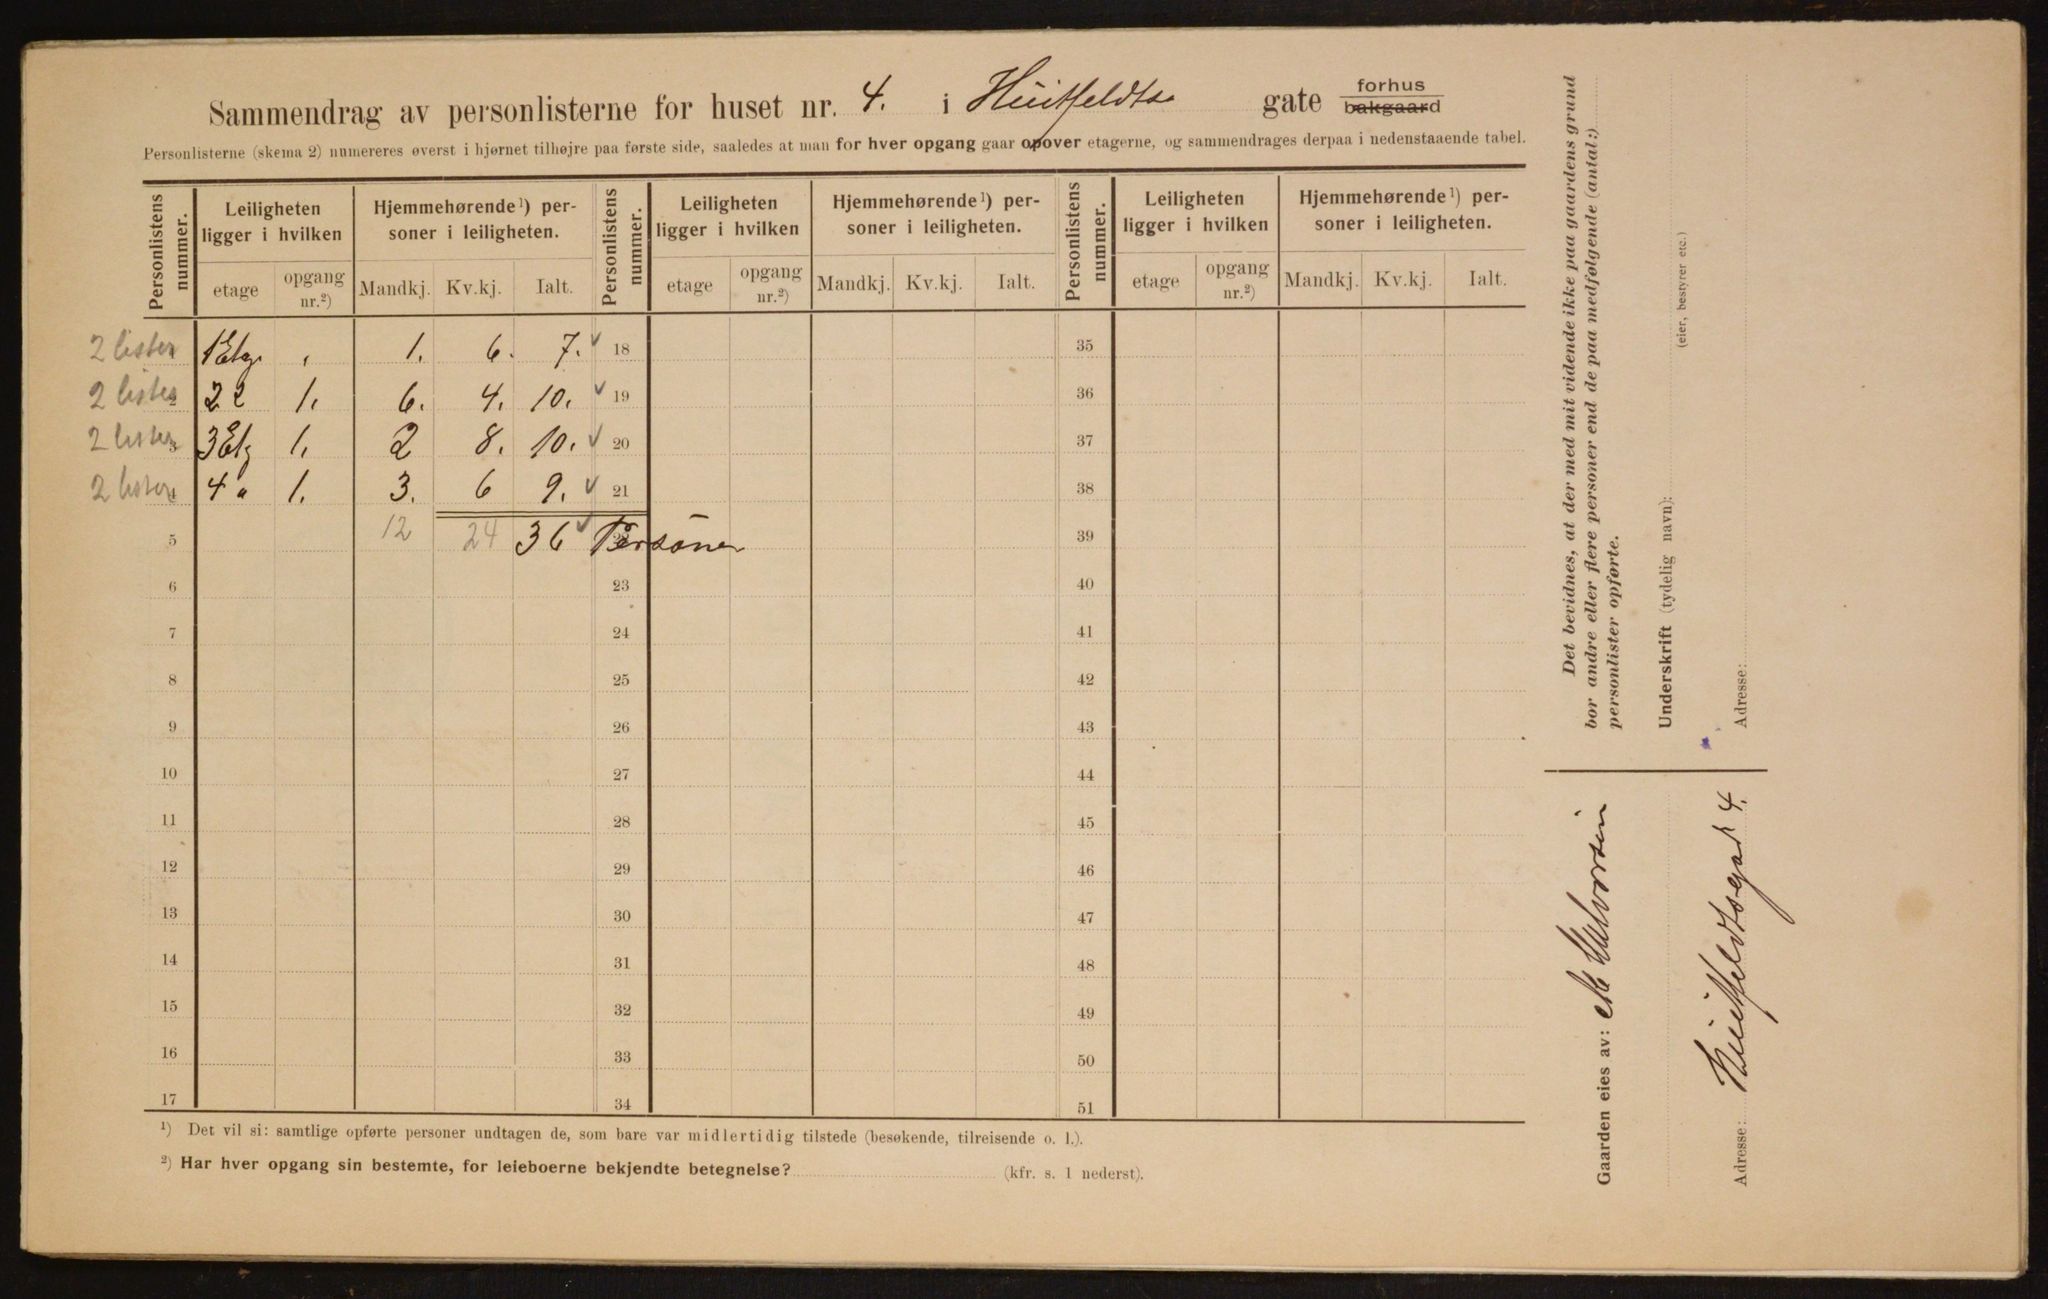 Sammendrag av personlisterne for huset nr. 4. i Huitfeldts gate forhus bakgaard
Personlisterne (skema 2) numereres øverst i hjørnet tilhøjre paa første side, saaledes at man for hver opgang gaar opover etagerne, og sammendrages derpaa i nedenstaaende tabel.
Personlistens nummer. Leiligheten ligger i hvilken Hjemmehørende 1) personer i leiligheten. Personlistens nummer. Leiligheten ligger i hvilken Hjemmehørende 1) personer i leiligheten. Personlistens nummer. Leiligheten ligger i hvilken Hjemmehørende 1) personer i leiligheten.
etage opgang nr.2) Mandkj. Kv.kj. Ialt. etage opgang nr.2) Mandkj. Kv.kj. Ialt. etage opgang nr.2) Mandkj. Kv.kj. Ialt.
2 lister 1 Etg. 1. 6. 7. ✓ 18 35
2 lister 2 2 1. 6. 4. 10. ✓ 19 36
2 lister 3 3 Etg 1. 2 8. 10. ✓ 20 37
2 lister 4 4 " 1. 3. 6 9. ✓ 21 38
5 12 24 36 ✓ Personer 39
6 23 40
7 24 41
8 25 42
9 26 43
10 27 44
11 28 45
12 29 46
13 30 47
14 31 48
15 32 49
16 33 50
17 34 51
1) Det vil si: samtlige opførte personer undtagen de, som bare var midlertidig tilstede (besøkende, tilreisende o. l.).
2) Har hver opgang sin bestemte, for leieboerne bekjendte betegnelse? (kfr. s. 1 nederst).
Det bevidnes, at der med mit vidende ikke paa gaardens grund
bor andre eller flere personer end de paa medfølgende (antal:)
personlister opførte.
Underskrift (tydelig navn):
(eier, bestyrer etc.)
Adresse:
Gaarden eies av: M Halvorsen
Adresse: Huitfeldtsgad 4.